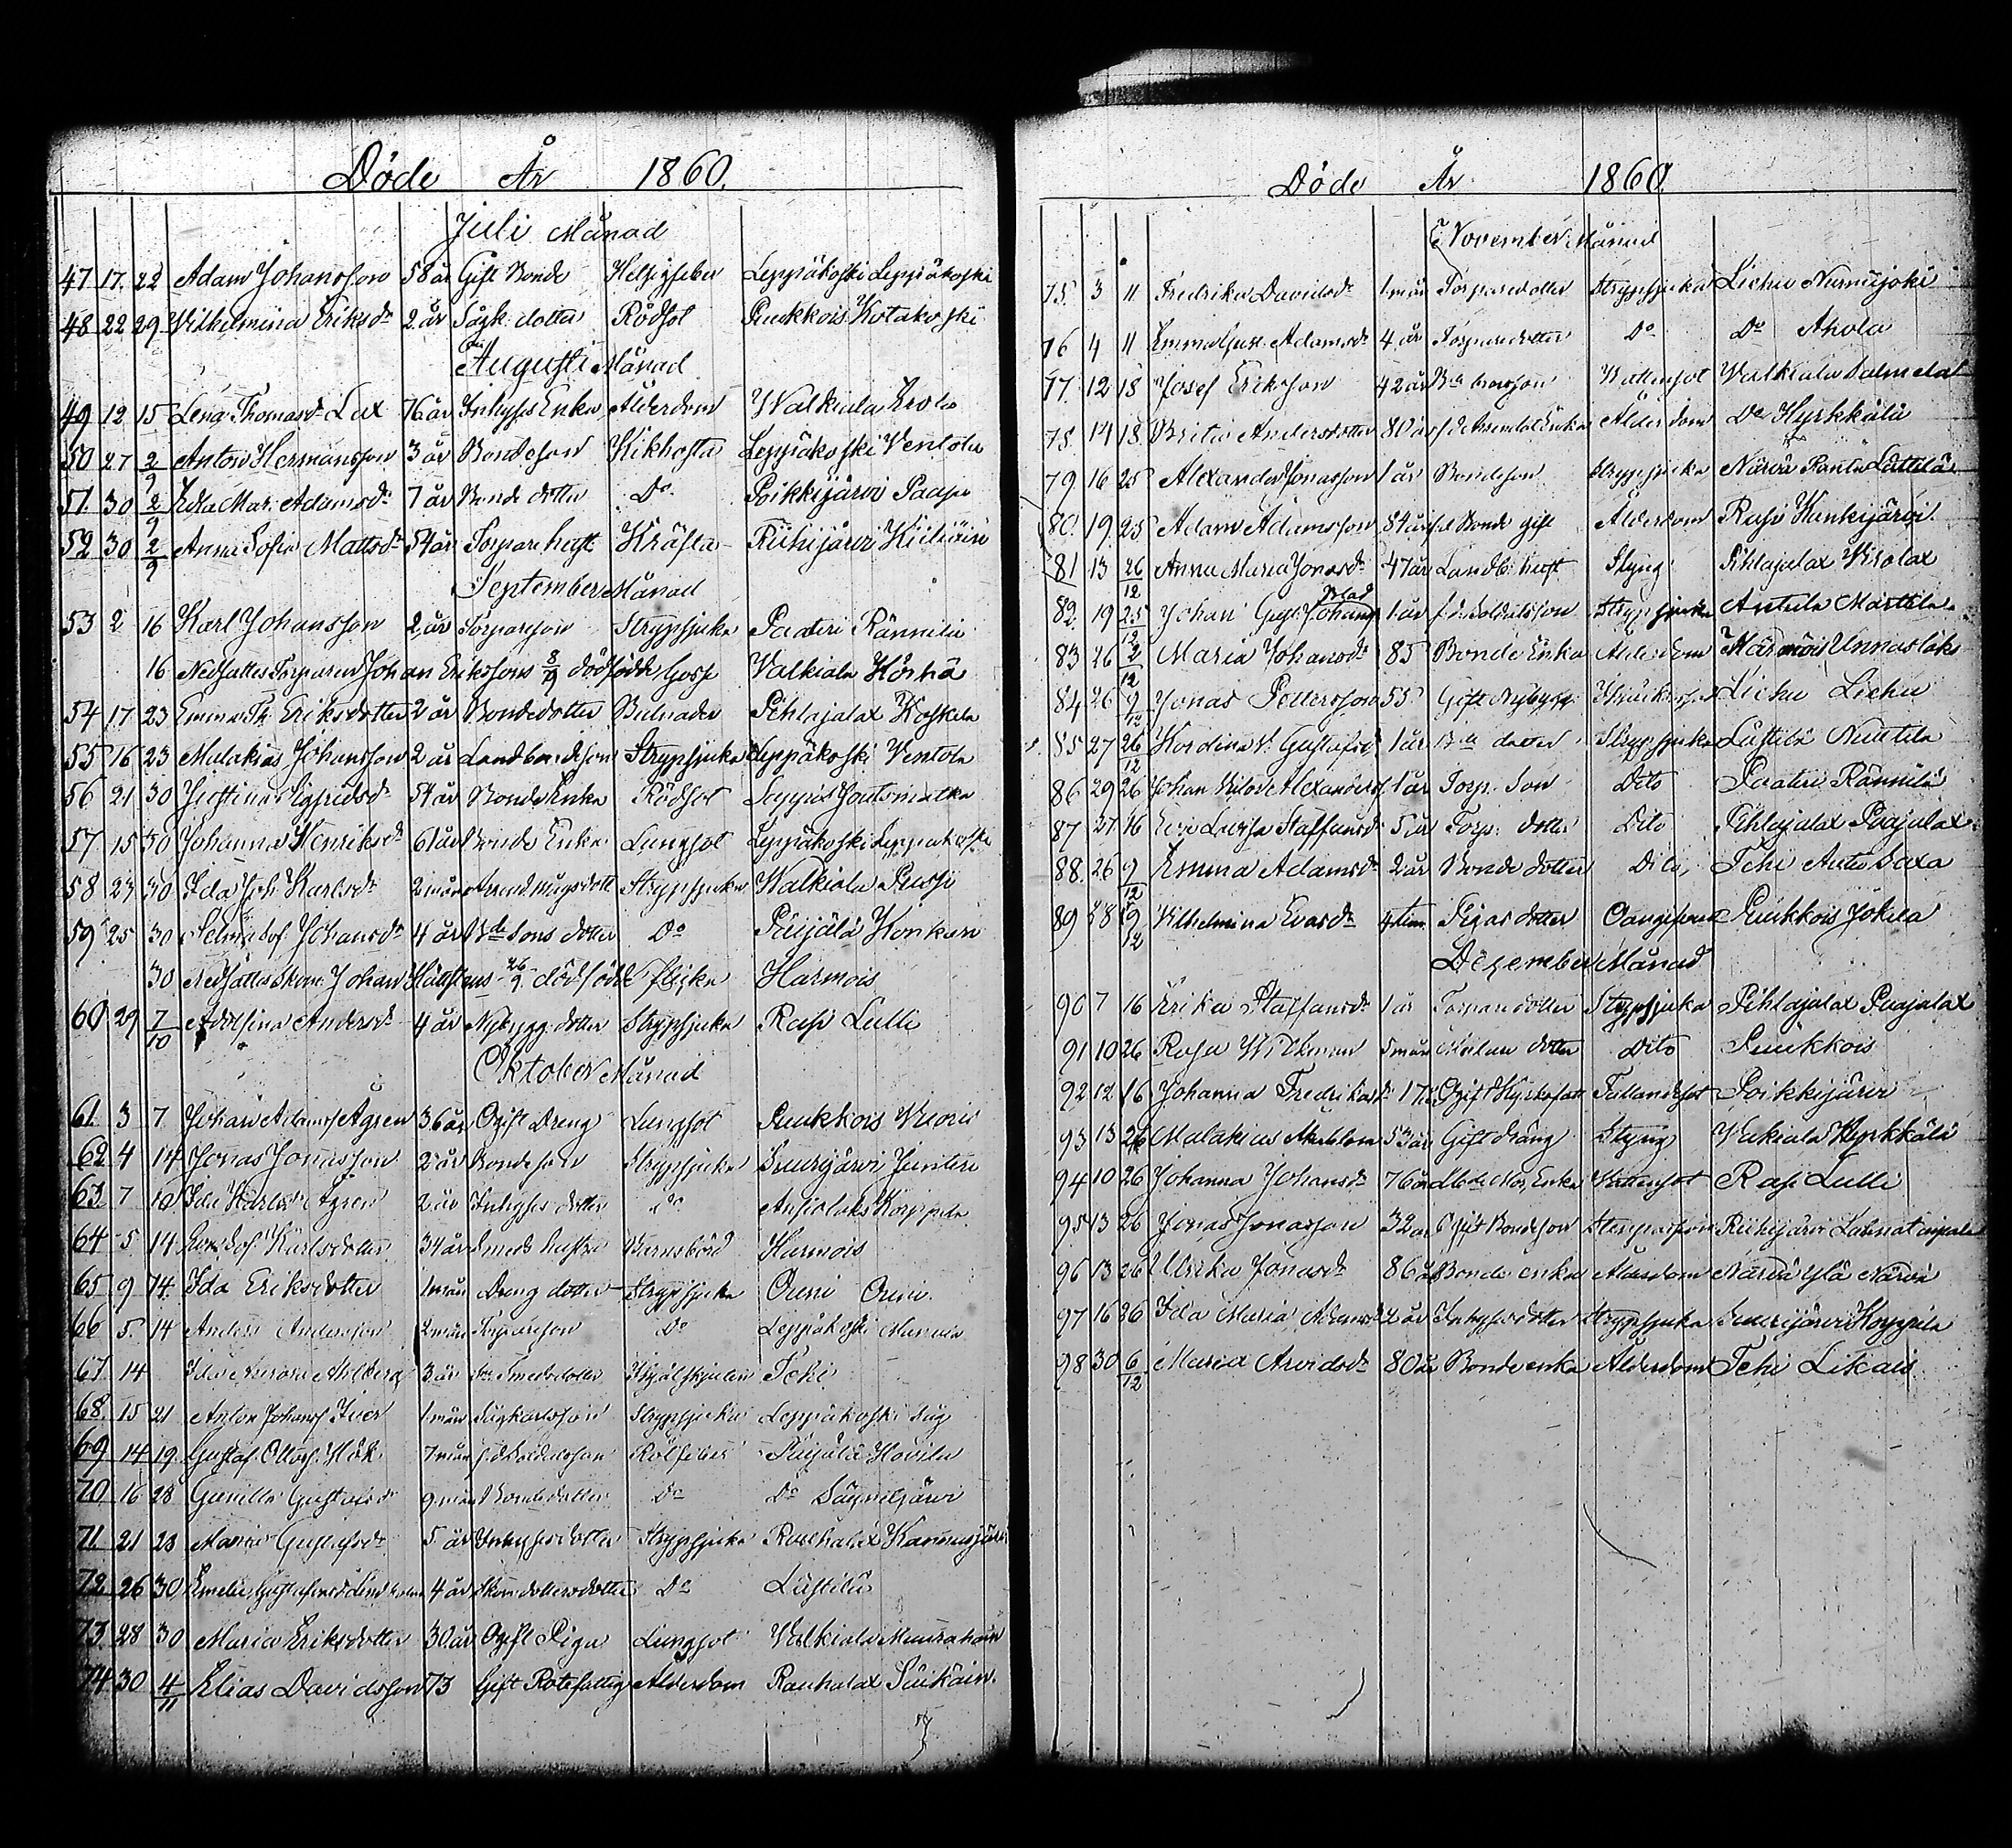 Döde År 1860.
Juli Månad
47 17. 22 Adam Johansson 58 år Gift Bonde Hetsigfeber Leppäkoski Leppäkoski
48 22 29 Wilhelmina Eriksdr 2 år Sågk. dotter Rödsot Puukkois Kotakoski
Augusti Månad
49 12 15 Lena Thomasdr Lax 76 år Inhyses Enka Ålderdom Walkiala Erola
50 27 2/9 Anton Hermansson 3 år Bondeson Kikhosta Leppäkoski Ventola
51. 30 2/9 Edla Mar. Adamsdr 7 år Bonde dotter Do Poikkijärvi Paapo
52 30 2/9 Anna Sofia Mattsdr 54 år Torpare hust Kräfta Riihijärvi
September Månad
53 2 16 Karl Johansson 2 år Torpareson Strypsjuka Paateri Rännilä
16 Nedsattes Torparen Johan Erikssons 8/9 dödfödde Gosse Valkiala Hörhä
54 17 23 Emma Eriksdotter 2 år Bondedotter Bulnader Pihlajalax Koskela
55 16 23 Malakias Johansson 2 år Landbondeson Strypsjuka Leppäkoski Ventola
56 21 30 Justina Sigfridsdr 54 år Bonde Enka Rödsot Seppäs Joutsniitka
57 15 30 Johanna Henriksdr 61 år Bonde Enka Lungsot Leppäkoski Leppäkoski
58 23 30 Ida Joh. Karlsdr 2 mån Strypsjuka Walkiala Pussi
59 25 30 Selma Sof. Johansdr 4 år Bde sons dotter Do Päijälä Honkan
30 Nedsattes Johan 26/9 dödfödde flicka Harmois
60 29 7/10 Adolfina Andersdr 4 år Nybygg. dotter Strypsjuka Rasi Lulli
Oktober Månad
61. 3 7 Johan Adamss Ågren 36 år Ogift Dreng Lungsot Puukkois Wuoris
62 4 14 Jonas Jonasson 2 år Bondeson Strypsjuka Suurijärvi Junttri
63. 7 10 Ida Karlsdr Ågren 2 år Inhyses dotter do Ansiolaks Korppila
64 5 14 Eva Sof. Karlsdotter 34 år Smeds hustru Barnsbörd Harmois
65 9 14. Ida Eriksdotter 1 mån Dreng dotter Strypsjuka Ouni Ouni.
66 5. 14 Anders Andersson 2 mån Torpareson Do Leppäkoski
67 14 3 år Smedsdotter Tehi
68. 15 21 Anton Johanss 1 mån Sågkarlsson Strypsjuka Leppäkoski Såg
69 14 19. Gustaf Ottoss. Hök 7 mån f.d. Soldatsson Rötfeber Päijälä Hovila
70 16 28 Gunilla Gustafsdr 9 mån Bondedotter Do Do Säynäjärvi
71. 21 28 Maria Gustafsdr 5 år Inhysesdotter Strypsjuka Rauhalax
72 26 30 Emelia Gustafsdr Lindholm 4 år dotter Do Lästilä
73. 28 30 Maria Eriksdotter 30 år Ogift Piga Lungsot Valkiala
74 30 4/11 Elias Davidsson 73 Gift Rotefattig Ålderdom Rauhalax
Döde År 1860
November Månad
75. 3 11 Fredrika Davidsdr 1 mån Torparedotter Strypsjuka Liehu Nurmijoki
76 4 11 Emma Gust. Adamsdr 4 år Torparedotter Do Do Ahola
77. 12 18 Josef Eriksson 42 år Vattusot Walkiala Salmela
78. 14 18. Brita Andersdotter 80 år Enka Ålderdom Do Hyrkkälä
79 16 25 Alexander Jonasson 1 år Bondeson Strypsjuka Närvä Ranta Lättilä
80. 19. 25 Adam Adamsson 84 år f.d. Bonde gift Ålderdom Rasi Kunkijärvi.
81 13 26/12 Anna Maria Jonasdr 47 år Landb. hust Styng Pihlajalax Uisolax
82. 19 25/12 Johan Gust. Johanss Blad 1 år f.d. Soldatsson Strypsjuka Auttula Marttila
83 26 2/12 Maria Johansdr 85 Bonde Enka Ålderdom Harmois Unnaslaks
84 26 9/12 Jonas Pettersson 55 Gift Nybygg. Liehu Liehu
85 27 26/12 Kordina V. Gustafsdr 1 år Bde dotter Strypsjuka Lästilä Nuutila
86 29 26 Johan Viktor Alexanderss 1 år Torp. Son Dito Paateri Rännilä
87 27. 16 Eva Lovisa Staffansdr 5 år Torp: dotter Dito Pihlajalax Paajalax
88. 26 9/12 Emma Adamsdr 2 år Bonde dotter Dito, Tehi Antti Saxa
89 28 9/12 Wilhelmina Evasdr 4 tim Pigas dotter Oangifven Puukkois Jokela
December Månad
90 7 16 Erika Staffansdr 1 år Torparedotter Strypsjuka Pihlajalax Paajalax
91 10 26 Rosa Wickman 5 mån Målare dotter Dito Puukkois
92 12 16 Johanna Fredriksdr 17 år Ogift Fallandesot Poikkijärvi
93 13 26 Malakias 53 år Gift Dräng Styng Valkiala Hyrkkälä
94 10 26 Johanna Johansdr 76 år Enka Vattusot Rasi Lulli
95 13 26 Jonas Jonasson 32 år Ogift Bondeson Riihijärvi
96 13 26 Ulrika Jonasdr 86 år Bonde enka Ålderdom Närvä Ylä Närvä
97 16 26 Ida Maria Adamsdr 2 år Inhysesdotter Strypsjuka Suurijärvi Korppila
98 30 6/12 Maria Arvidsdr 80 år Bonde enka Ålderdom Tehi Likais